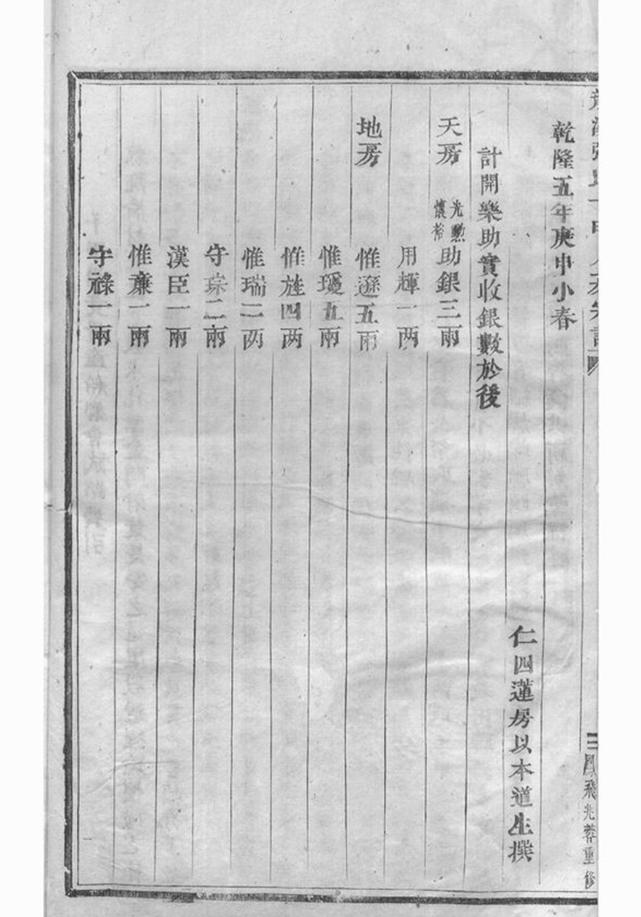 乾隆五年庚申小春
仁四蓮房以本道生撰
計開樂助實收銀數於後
天房 光勲懷裕助銀三兩
用輝一两
地房 惟遜五兩
惟瑗五兩
惟旌四两
惟瑞二两
守琮二兩
漢臣一兩
惟亷一兩
守祿一兩
飛光蓉重修